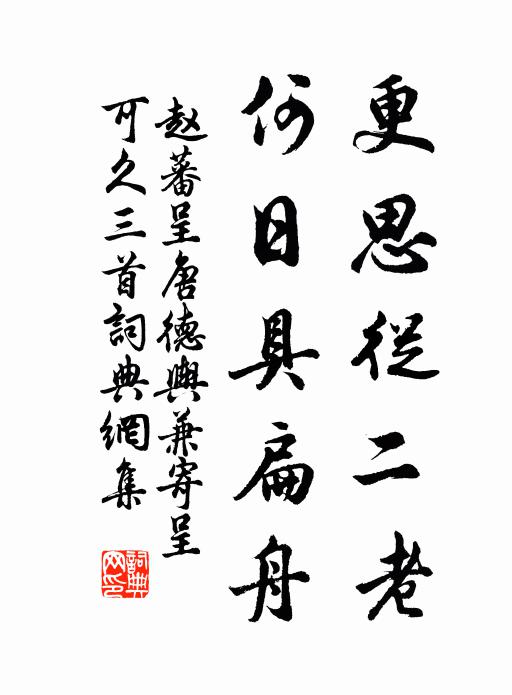 更思從二老
何日具扁舟
赵蕃呈唐德輿兼寄呈
可久三首詞典網集
詞典
网印